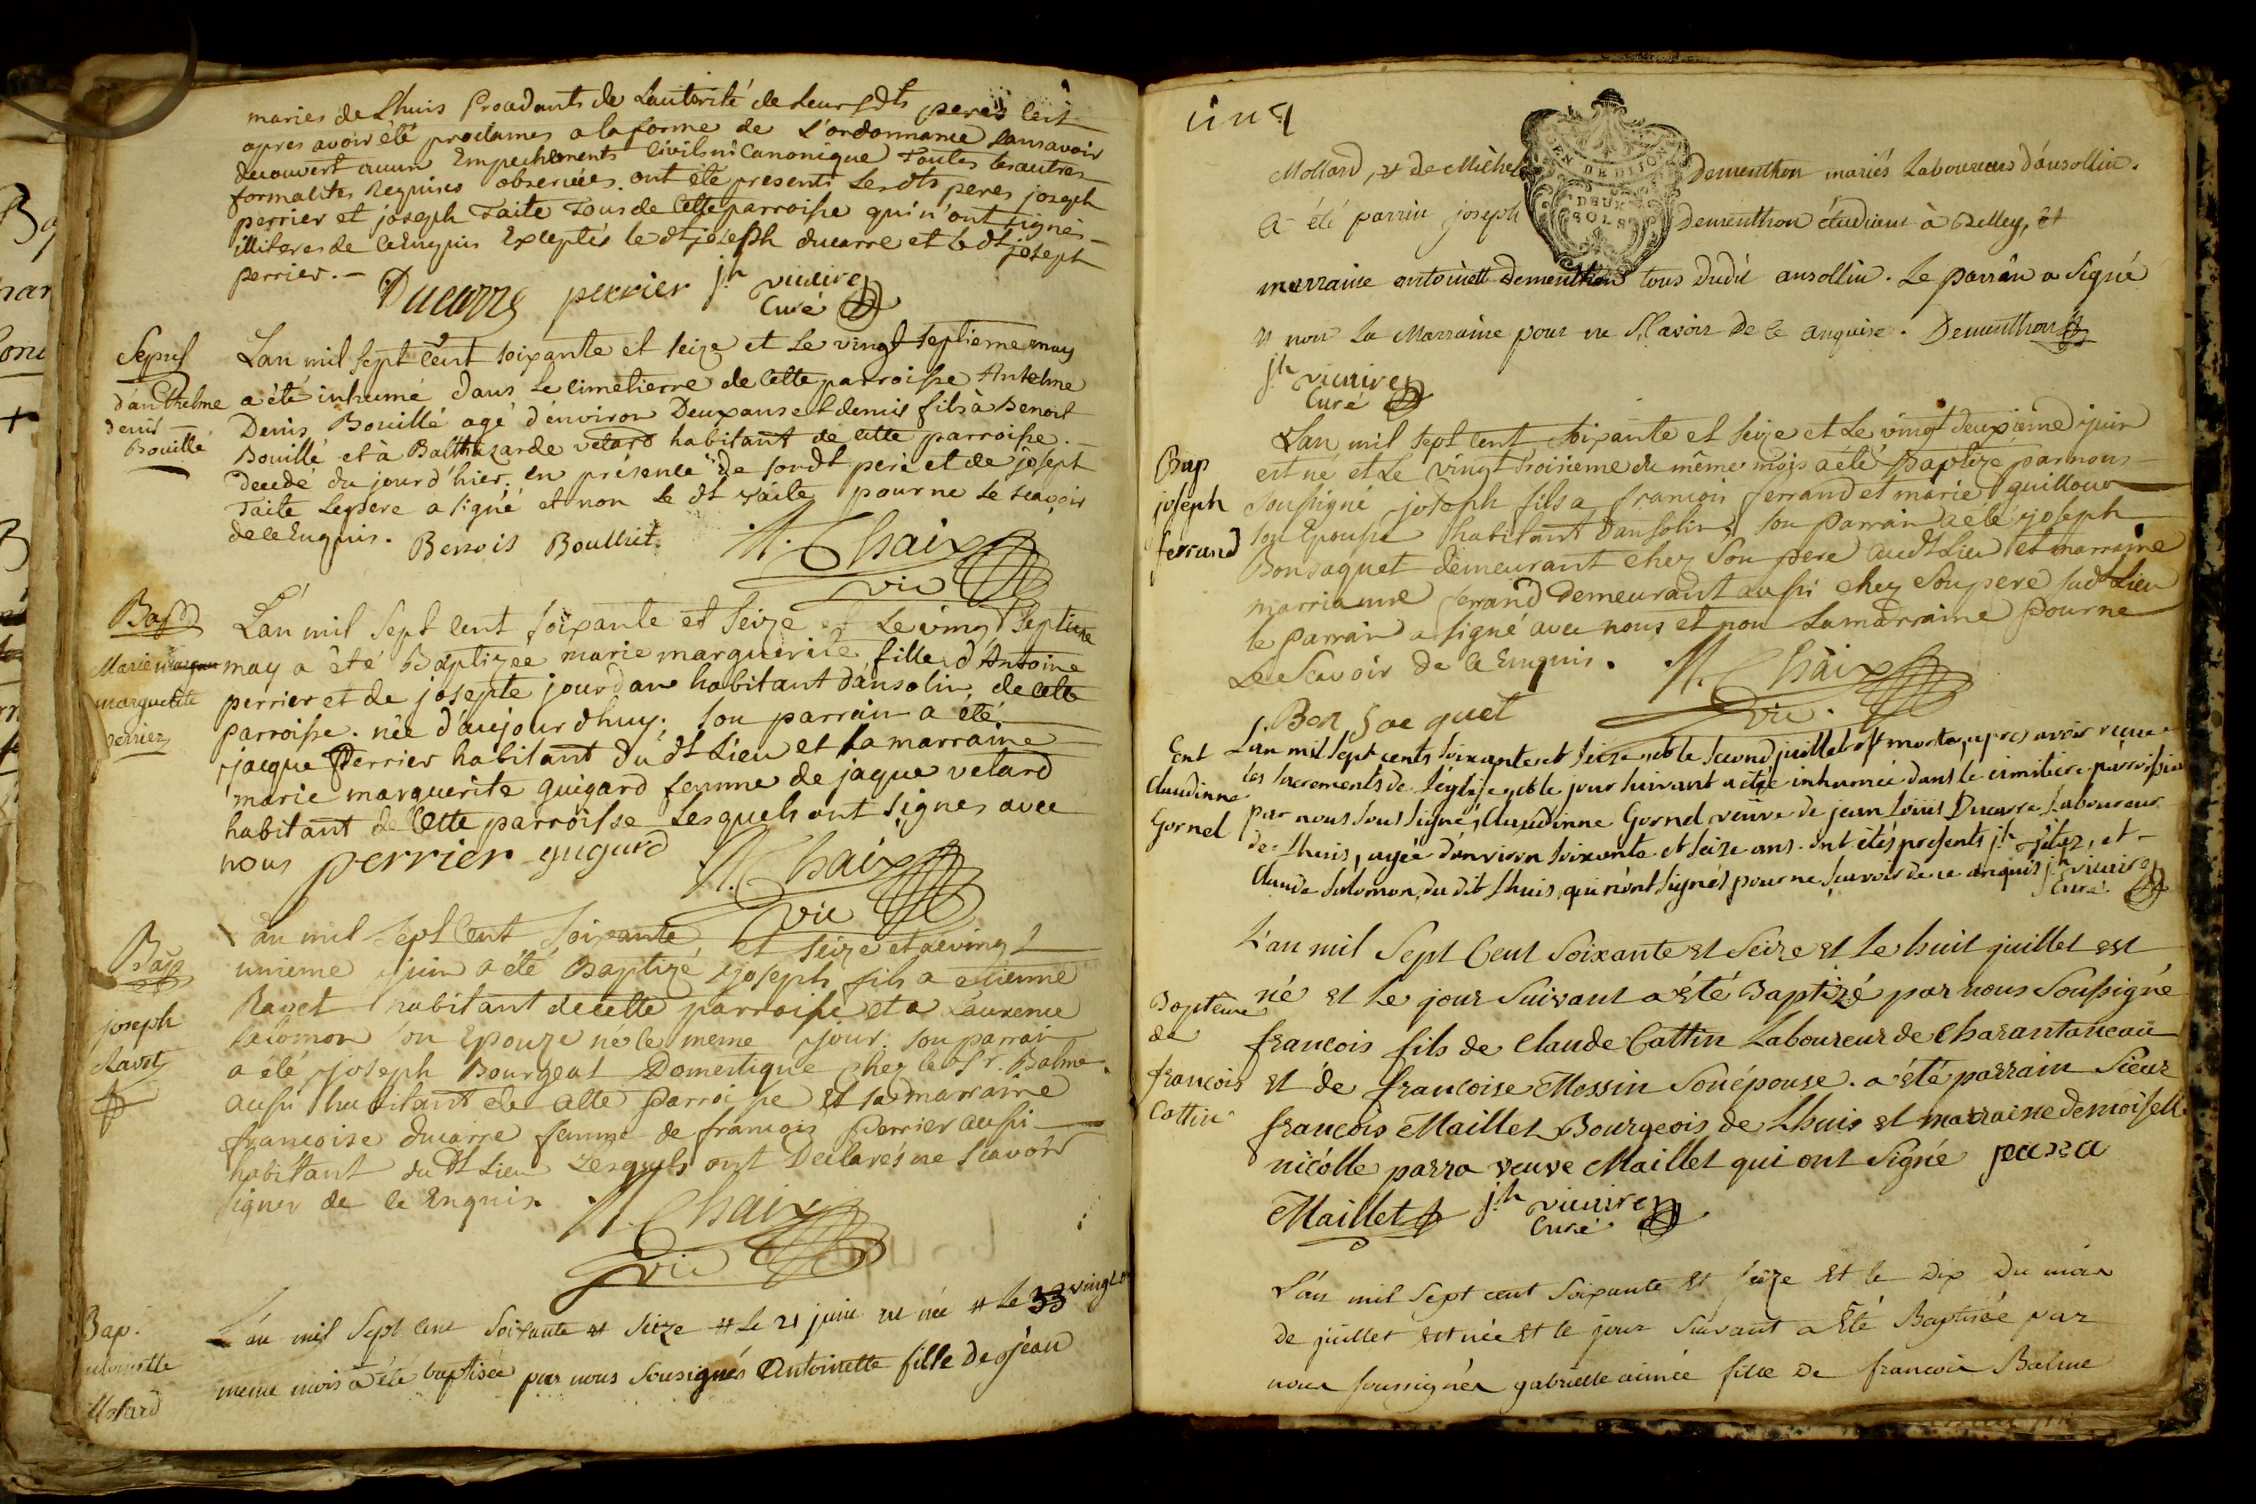 maries de Lhuis Procedants de Lautorité de Leursdts peres c'est
apres avoir été proclames a la forme de L'ordonnance sans avoir
decouvert aucun Empechements civils ni Canonique Toutes les autres
formalites Requises observées. ont été presents Lesdts peres joseph
perrier et joseph Taite Tous de Cette parroisse qui n'ont signés
illiteres de ce Enquis Exceptés le dt joseph ducarre et le dt joseph
perrier.
Ducarre perrier jh vicaire
Curé
Sepul
d'anthelme
denis
Bouillé
Lan mil sept cent soixante et seize et Le vingt septieme may
a été inhumé dans Le cimetierre de Cette parroisse Antelme
Denis Bouillé agé d'environ Deux ans et demis fils à Benoit
Bouillé et à Balthazarde velard habitant de Cette parroisse.
Decedé du jour d'hier. en présence de sondt pere et de joseph
Taite Le pere a signé et non le dt Taite pour ne Le scavoir
de ce Enquis. Benois Boulliet. M. Chaix
vic
Bap
Marie
marguerite
perrier
L'an mil Sept Cent soixante et Seize et Le vingt Septieme
may a été Baptizée marie marguerite fille d'Antoine
perrier et de josepte jourdan habitant d'ansolin de cette
parroisse. née d'aujourdhuy. Son parrain a été
jacque Perrier habitant du dt Lieu et la marraine
marie marguerite guigard femme de jaque velard
habitant de Cette parroisse Lesquels ont Signes avec
nous perrier gugard M. Chaix
vic
Bap
joseph
Ravet
L'an mil Sept Cent Soixante et Seize et Le vingt
unieme juin a été Baptizé joseph fils a etienne
Ravet habitant de cette parroisse et a Laurence
Salomon son Epouze né le meme jour. son parrain
a été joseph Bourgeat Domestique chez le Sr. Balme
aussi habitant de Cette Parroisse et sa marraine
francoise ducarre femme de francois Perrier aussi
habitant du dt Lieu Lesquels ont Declarés ne Scavoir
signer de ce Enquis. M. Chaix
vic
Bap.
Antoinette
Mollard
L'an mil Sept Cent Soixante et Seize et Le 21 juin est née et Le 33 vingt
meme mois a été baptisée par nous Sousignés Antoinette fille de jean
Mollard, et de Michel Dementhon mariés Laboureurs d'ansollin.
EN DE DIJON
DEUX
SOLS
A été parrin joseph Dementhon étudiant à Belley, et
marraine antoinette Dementhon tous dudit ansollin. Le parrin a Signé
et non La Marraine pour ne Sçavoir de ce anquise. Dementhon
jh vicaire
Curé
Bap
joseph
ferrand
Lan mil sept cent soixante et seize et Le vingt deuxieme juin
est né et Le vingt troisieme du même mois a été Baptizé par nous
Soussigné joseph fils a francois ferrand et marie guilloux
son Epouse habitant Dansolin. Son Parrain a été joseph
Bonsaquet demeurant chez Son pere audt Lieu et marraine
marrianne ferrand Demeurant aussi chez Son pere sudt Lieu
le Parrain a signé avec nous et non La marraine Pour ne
Le Scavoir de ce Enquis. M. Chaix
Bon Sacquet vic.
Ent
Claudinne
Gornel
L'an mil sept cents soixante et seize et le second juillet est morte, apres avoir reçue
les sacrements de l'église, et le jour suivant a étée inhumée dans le cimitiere parroissial
par nous sous signés, Claudinne Gornel veuve de jean Louis Ducarre Laboureur
de Lhuis, agée d'environ soixante et seize ans. Ont étés presents jh et
Claude Salomon, du dit Lhuis, qui n'ont signés pour ne scavoir de ce anquis jh vicaire
Curé
Baptême
de
françois
Cattin
L'an mil Sept Cent Soixante et Seize et Le huit juillet est
né et Le jour Suivant a été Baptizé par nous Soussigné
françois fils de Claude Cattin Laboureur de Charantonceau
et de françoise Mossin Son épouse. a été parrain Sieur
françois Maillet Bourgeois de Lhuis et marraine demoiselle
nicolle parra veuve Maillet qui ont Signé parra
Maillet jh vicaire
Curé
L'an mil Sept cent Soixante et seize et le dix du mois
de juillet est née et le jour Suivant a été Baptisée par
nous soussignés gabrielle aimée fille de francois Balme